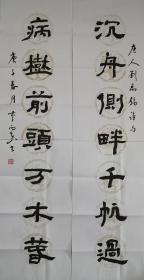 唐人劉禹錫詩句
沉舟側畔千帆過
病樹前頭万木萅
庚子春月李